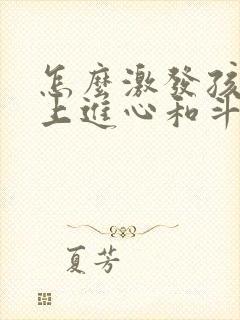 怎麼激發孩
上進心和斗
夏芳